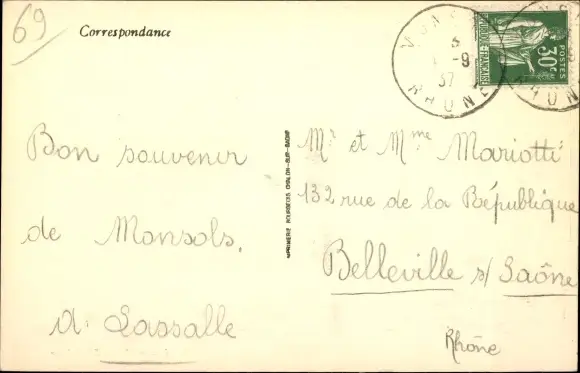 69
Correspondance
Bon souvenir
de Monsols.
A. Lassalle
IMPRIMERIE BOURGEOIS CHALON-SUR-SAONE
RHONE
-9
37
POSTES
30c
Mr et Mme Mariotti
132 rue de la République
Belleville s/ Saône
Rhône